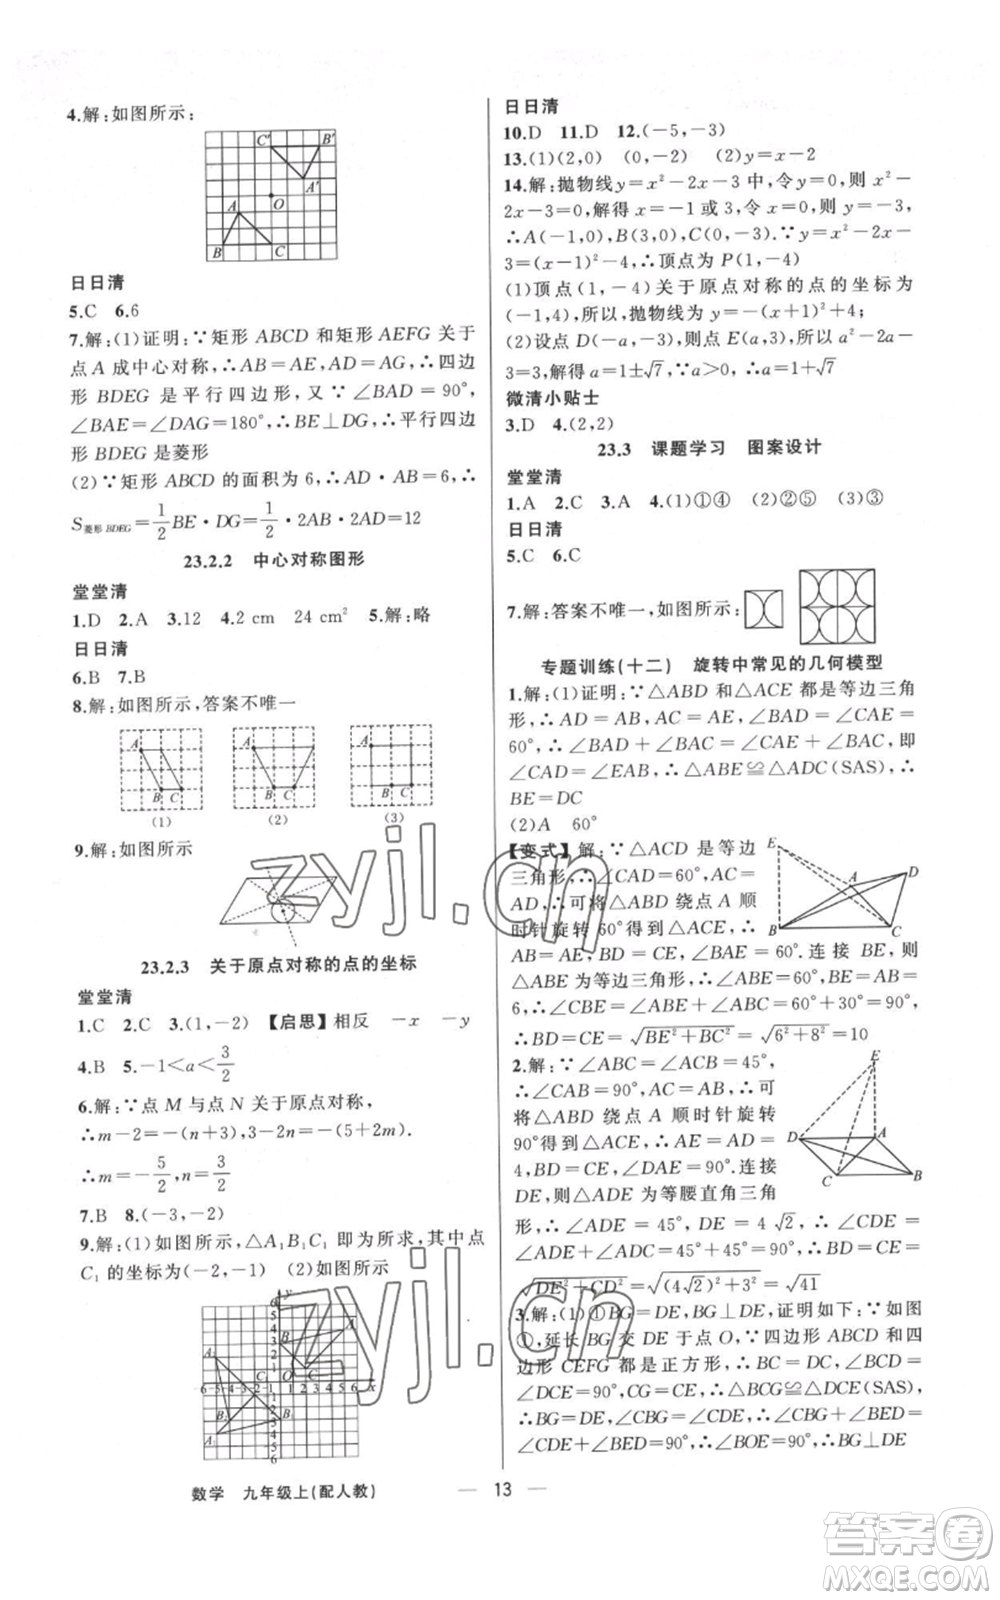 4.解:如图所示:
C′ B′
A′
O
A
B C
日日清
5.C 6.6
7.解:(1)证明:∵矩形 ABCD 和矩形 AEFG 关于
点 A 成中心对称,∴AB=AE,AD=AG,∴四边
形 BDEG 是平行四边形,又∵∠BAD=90°,
∠BAE=∠DAG=180°,∴BE⊥DG,∴平行四边
形 BDEG 是菱形
(2)∵矩形 ABCD 的面积为 6,∴AD·AB=6,∴
S菱形BDEG=1/2BE·DG=1/2·2AB·2AD=12
23.2.2 中心对称图形
堂堂清
1.D 2.A 3.12 4.2 cm 24 cm² 5.解:略
日日清
6.B 7.B
8.解:如图所示,答案不唯一
A A A
B C B C B C
(1) (2) (3)
9.解:如图所示
23.2.3 关于原点对称的点的坐标
堂堂清
1.C 2.C 3.(1,-2) 【启思】相反 -x -y
4.B 5.-1<a<3/2
6.解:∵点 M 与点 N 关于原点对称,
∴m-2=-(n+3),3-2n=-(5+2m).
∴m=-5/2,n=3/2
7.B 8.(-3,-2)
9.解:(1)如图所示,△A₁B₁C₁ 即为所求,其中点
C₁ 的坐标为(-2,-1) (2)如图所示
数学 九年级上(配人教)
日日清
10.D 11.D 12.(-5,-3)
13.(1)(2,0) (0,-2) (2)y=x-2
14.解:抛物线y=x²-2x-3 中,令y=0,则 x²-
2x-3=0,解得 x=-1 或 3,令 x=0,则 y=-3,
∴A(-1,0),B(3,0),C(0,-3).∵y=x²-2x-
3=(x-1)²-4,∴顶点为 P(1,-4)
(1)顶点(1,-4)关于原点对称的点的坐标为
(-1,4),所以,抛物线为y=-(x+1)²+4
(2)设点 D(-a,-3),则点 E(a,3),∴a²-2a-
3=3,解得 a=1±√7,∵a>0,∴a=1+√7
微清小贴士
3.D 4.(2,2)
23.3 课题学习 图案设计
堂堂清
1.A 2.C 3.A 4.(1)①④ (2)②⑤ (3)③
日日清
5.C 6.C
7.解:答案不唯一,如图所示:
专题训练(十二) 旋转中常见的几何模型
1.解:(1)证明:∵△ABD 和△ACE 都是等边三角
形,∴AD=AB,AC=AE,∠BAD=∠CAE=
60°,∴∠BAD+∠BAC=∠CAE+∠BAC,即
∠CAD=∠EAB,∴△ABE≌△ADC(SAS),∴
BE=DC
(2)A 60°
【变式】解:∵△ACD 是等边
三角形,∴∠CAD=60°,AC=
AD,∴可将△ABD 绕点 A 顺
时针旋转 60°得到△ACE,∴
AB=AE,∠BAE=60°.连接 BE,
E
A D
B C
可知△ABE 为等边三角形,∴∠ABE=60°,BE=AB=
6,∴∠CBE=∠ABE+∠ABC=60°+30°=90°,
∴BD=CE=√BE²+BC²=√6²+8²=10
2.解:∵∠ABC=∠ACB=45°,
∴∠CAB=90°,AC=AB,∴可
将△ABD 绕点 A 顺时针旋转
90°得到△ACE,∴AE=AD=
4,BD=CE,∠DAE=90°.连接
DE,则△ADE 为等腰直角三角
形,∴∠ADE=45°,DE=4√2,∴∠CDE=
∠ADE+∠ADC=90°,∴BD=CE=
√DE²+CD²=√(4√2)²+3²=√41
E
D A
C B
3.解:(1)①BG=DE,BG⊥DE,证明如下:∵如图
①,延长 BG 交 DE 于点 O,∵四边形 ABCD 和四
边形 CEFG 都是正方形,∴BC=DC,∠BCG=
∠DCE=90°,CG=CE,∴△BCG≌△DCE(SAS),
∴BG=DE,∠CBG=∠CDE,∴∠CBG+∠BED
=∠CDE+∠BED=90°,∴∠BOE=90°,∴BG⊥DE
13
zyjl.cn
zyjl.cn
答案卷